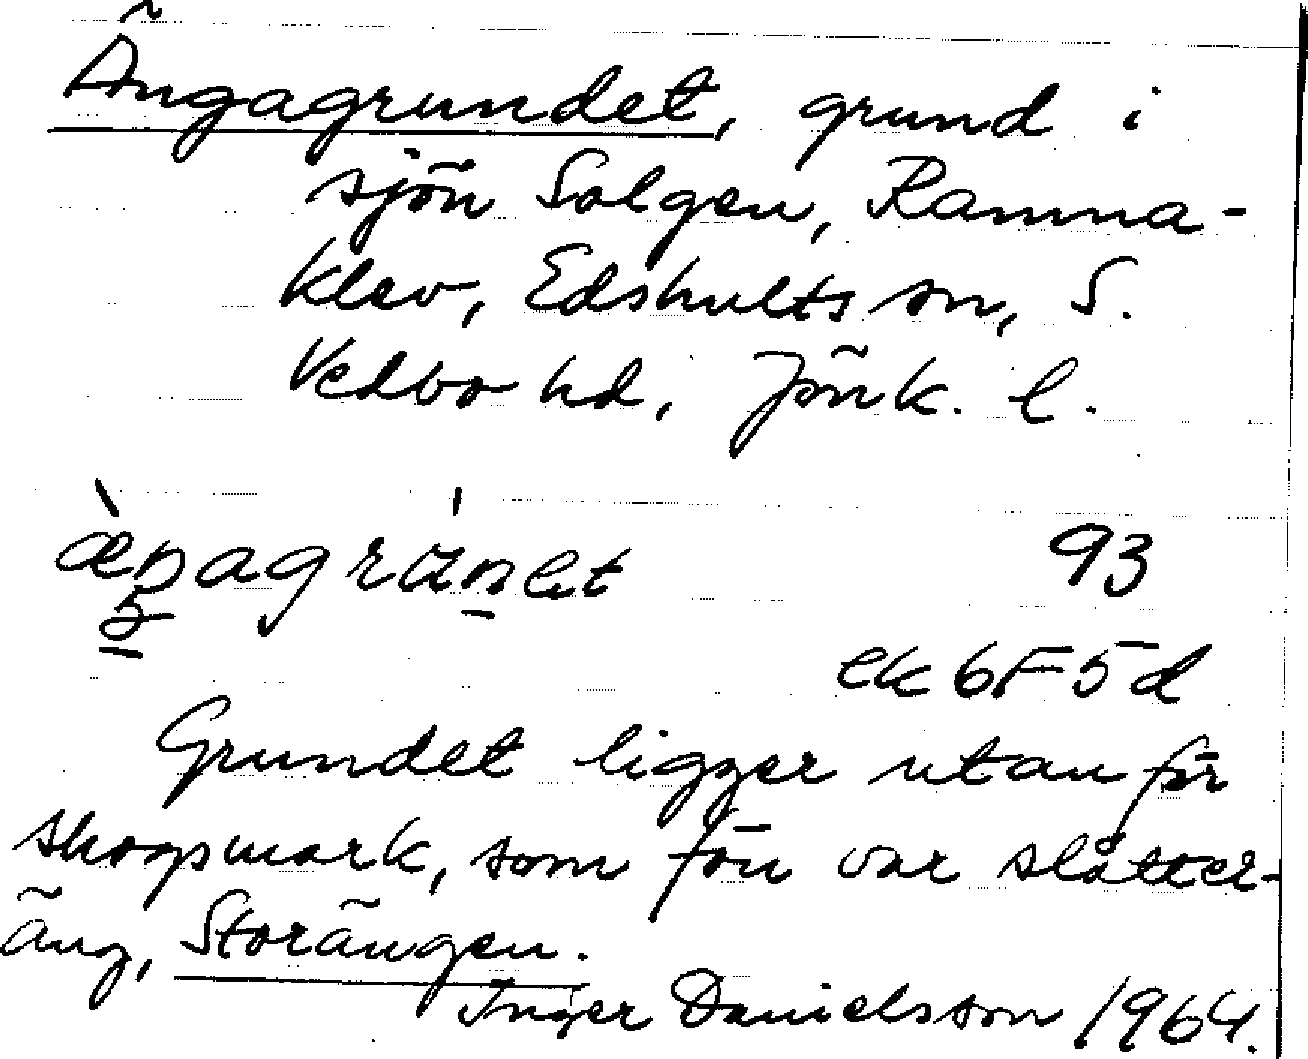 Ängagrundet, grund i
sjön Solgen, Ramna-
klev, Edshults sn, S.
Vedbo hd, Jönk. l.
93
ek 6F5d
Grundet ligger utanför
skogsmark, som förr var slåtter-
äng, Storängen.
Inger Danielsson 1964.